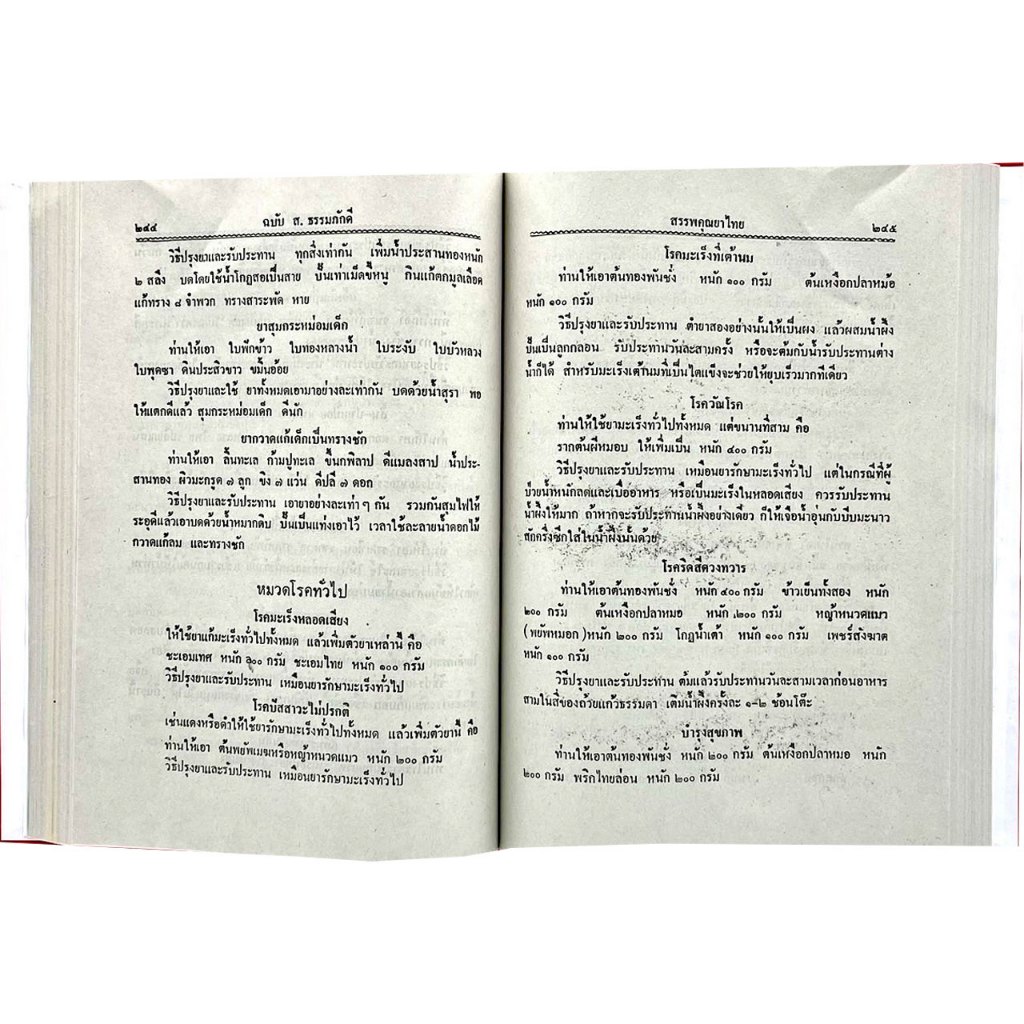 ๒๔๔ ฉบับ ส. ธรรมภักดี
วิธีปรุงยาและรับประทาน ทุกสิ่งเท่ากัน เพิ่มน้ำประสานทองหนัก
๒ สลึง บดโดยใช้น้ำโกฏสอเป็นสาย ปั้นเท่าเม็ดขี้หนู กินแก้ตกมูลเลือด
แก้ทราง ๘ จำพวก ทรางสาระพัด หาย
ยาสุมกระหม่อมเด็ก
ท่านให้เอา ใบพักข้าว ใบทองหลางน้ำ ใบระงับ ใบบัวหลวง
ใบพุดซา ดินประสิวขาว ขมิ้นอ้อย
วิธีปรุงยาและใช้ ยาทั้งหมดเอามาอย่างละเท่ากัน บดด้วยน้ำสุรา พอ
ให้แตกดีแล้ว สุมกระหม่อมเด็ก ดีนัก
ยากวาดแก้เด็กเป็นทรางชัก
ท่านให้เอา ลิ้นทะเล ก้ามปูทะเล ขี้นกพิลาป ดีแมลงสาป น้ำประ-
สานทอง ผิวมะกรูด ๗ ลูก ขิง ๗ แว่น ดีปลี ๗ ดอก
วิธีปรุงยาและรับประทาน เอายาอย่างละเท่า ๆ กัน รวมกันสุมไฟให้
ระอุดีแล้วเอาบดด้วยน้ำหมากดิบ ปั้นเป็นแท่งเอาไว้ เวลาใช้ละลายน้ำดอกไม้
กวาดแก้ลม และทรางชัก
หมวดโรคทั่วไป
โรคมะเร็งหลอดเสียง
ให้ใช้ยาแก้มะเร็งทั่วไปทั้งหมด แล้วเพิ่มตัวยาเหล่านี้ คือ
ชะเอมเทศ หนัก ๑๐๐ กรัม ชะเอมไทย หนัก ๑๐๐ กรัม
วิธีปรุงยาและรับประทาน เหมือนยารักษามะเร็งทั่วไป
โรคปัสสาวะไม่ปรกติ
เช่นแดงหรือดำให้ใช้ยารักษามะเร็งทั่วไปทั้งหมด แล้วเพิ่มตัวยานี้ คือ
ท่านให้เอา ต้นพยัพเมฆหรือหญ้าหนวดแมว หนัก ๒๐๐ กรัม
วิธีปรุงยาและรับประทาน เหมือนยารักษามะเร็งทั่วไป
สรรพคุณยาไทย ๒๔๕
โรคมะเร็งที่เต้านม
ท่านให้เอาต้นทองพันชั่ง หนัก ๑๐๐ กรัม ต้นเหงือกปลาหม้อ
หนัก ๑๐๐ กรัม
วิธีปรุงยาและรับประทาน ตำยาสองอย่างนั้นให้เป็นผง แล้วผสมน้ำผึ้ง
ปั้นเป็นลูกกลอน รับประทานวันละสามครั้ง หรือจะต้มกับน้ำรับประทานต่าง
น้ำก็ได้ สำหรับมะเร็งเต้านมที่เป็นไตแข็งจะช่วยให้ยุบเร็วมากทีเดียว
โรควัณโรค
ท่านให้ใช้ยามะเร็งทั่วไปทั้งหมด แต่ขนานที่สาม คือ
รากต้นผีหมอบ ให้เพิ่มเป็น หนัก ๔๐๐ กรัม
วิธีปรุงยาและรับประทาน เหมือนยารักษามะเร็งทั่วไป แต่ในกรณีที่ผู้
ป่วยน้ำหนักลดและเบื่ออาหาร หรือเป็นมะเร็งในหลอดเสียง ควรรับประทาน
น้ำผึ้งให้มาก ถ้าหากจะรับประทานน้ำผึ้งอย่างเดียว ก็ให้เจือน้ำอุ่นกับบีบมะนาว
สักครึ่งซีกใส่ในน้ำผึ้งนั้นด้วย
โรคริดสีดวงทวาร
ท่านให้เอาต้นทองพันชั่ง หนัก ๔๐๐ กรัม ข้าวเย็นทั้งสอง หนัก
๒๐๐ กรัม ต้นเหงือกปลาหมอ หนัก ๒๐๐ กรัม หญ้าหนวดแมว
(พยัพหมอก) หนัก ๒๐๐ กรัม โกฏน้ำเต้า หนัก ๑๐๐ กรัม เพชร์สังฆาต
หนัก ๑๐๐ กรัม
วิธีปรุงยาและรับประทาน ต้มแล้วรับประทานวันละสามเวลาก่อนอาหาร
สามในสี่ของถ้วยแก้วธรรมดา เติมน้ำผึ้งครั้งละ ๑-๒ ช้อนโต๊ะ
บำรุงสุขภาพ
ท่านให้เอาต้นทองพันชั่ง หนัก ๒๐๐ กรัม ต้นเหงือกปลาหมอ หนัก
๒๐๐ กรัม พริกไทยล่อน หนัก ๒๐๐ กรัม